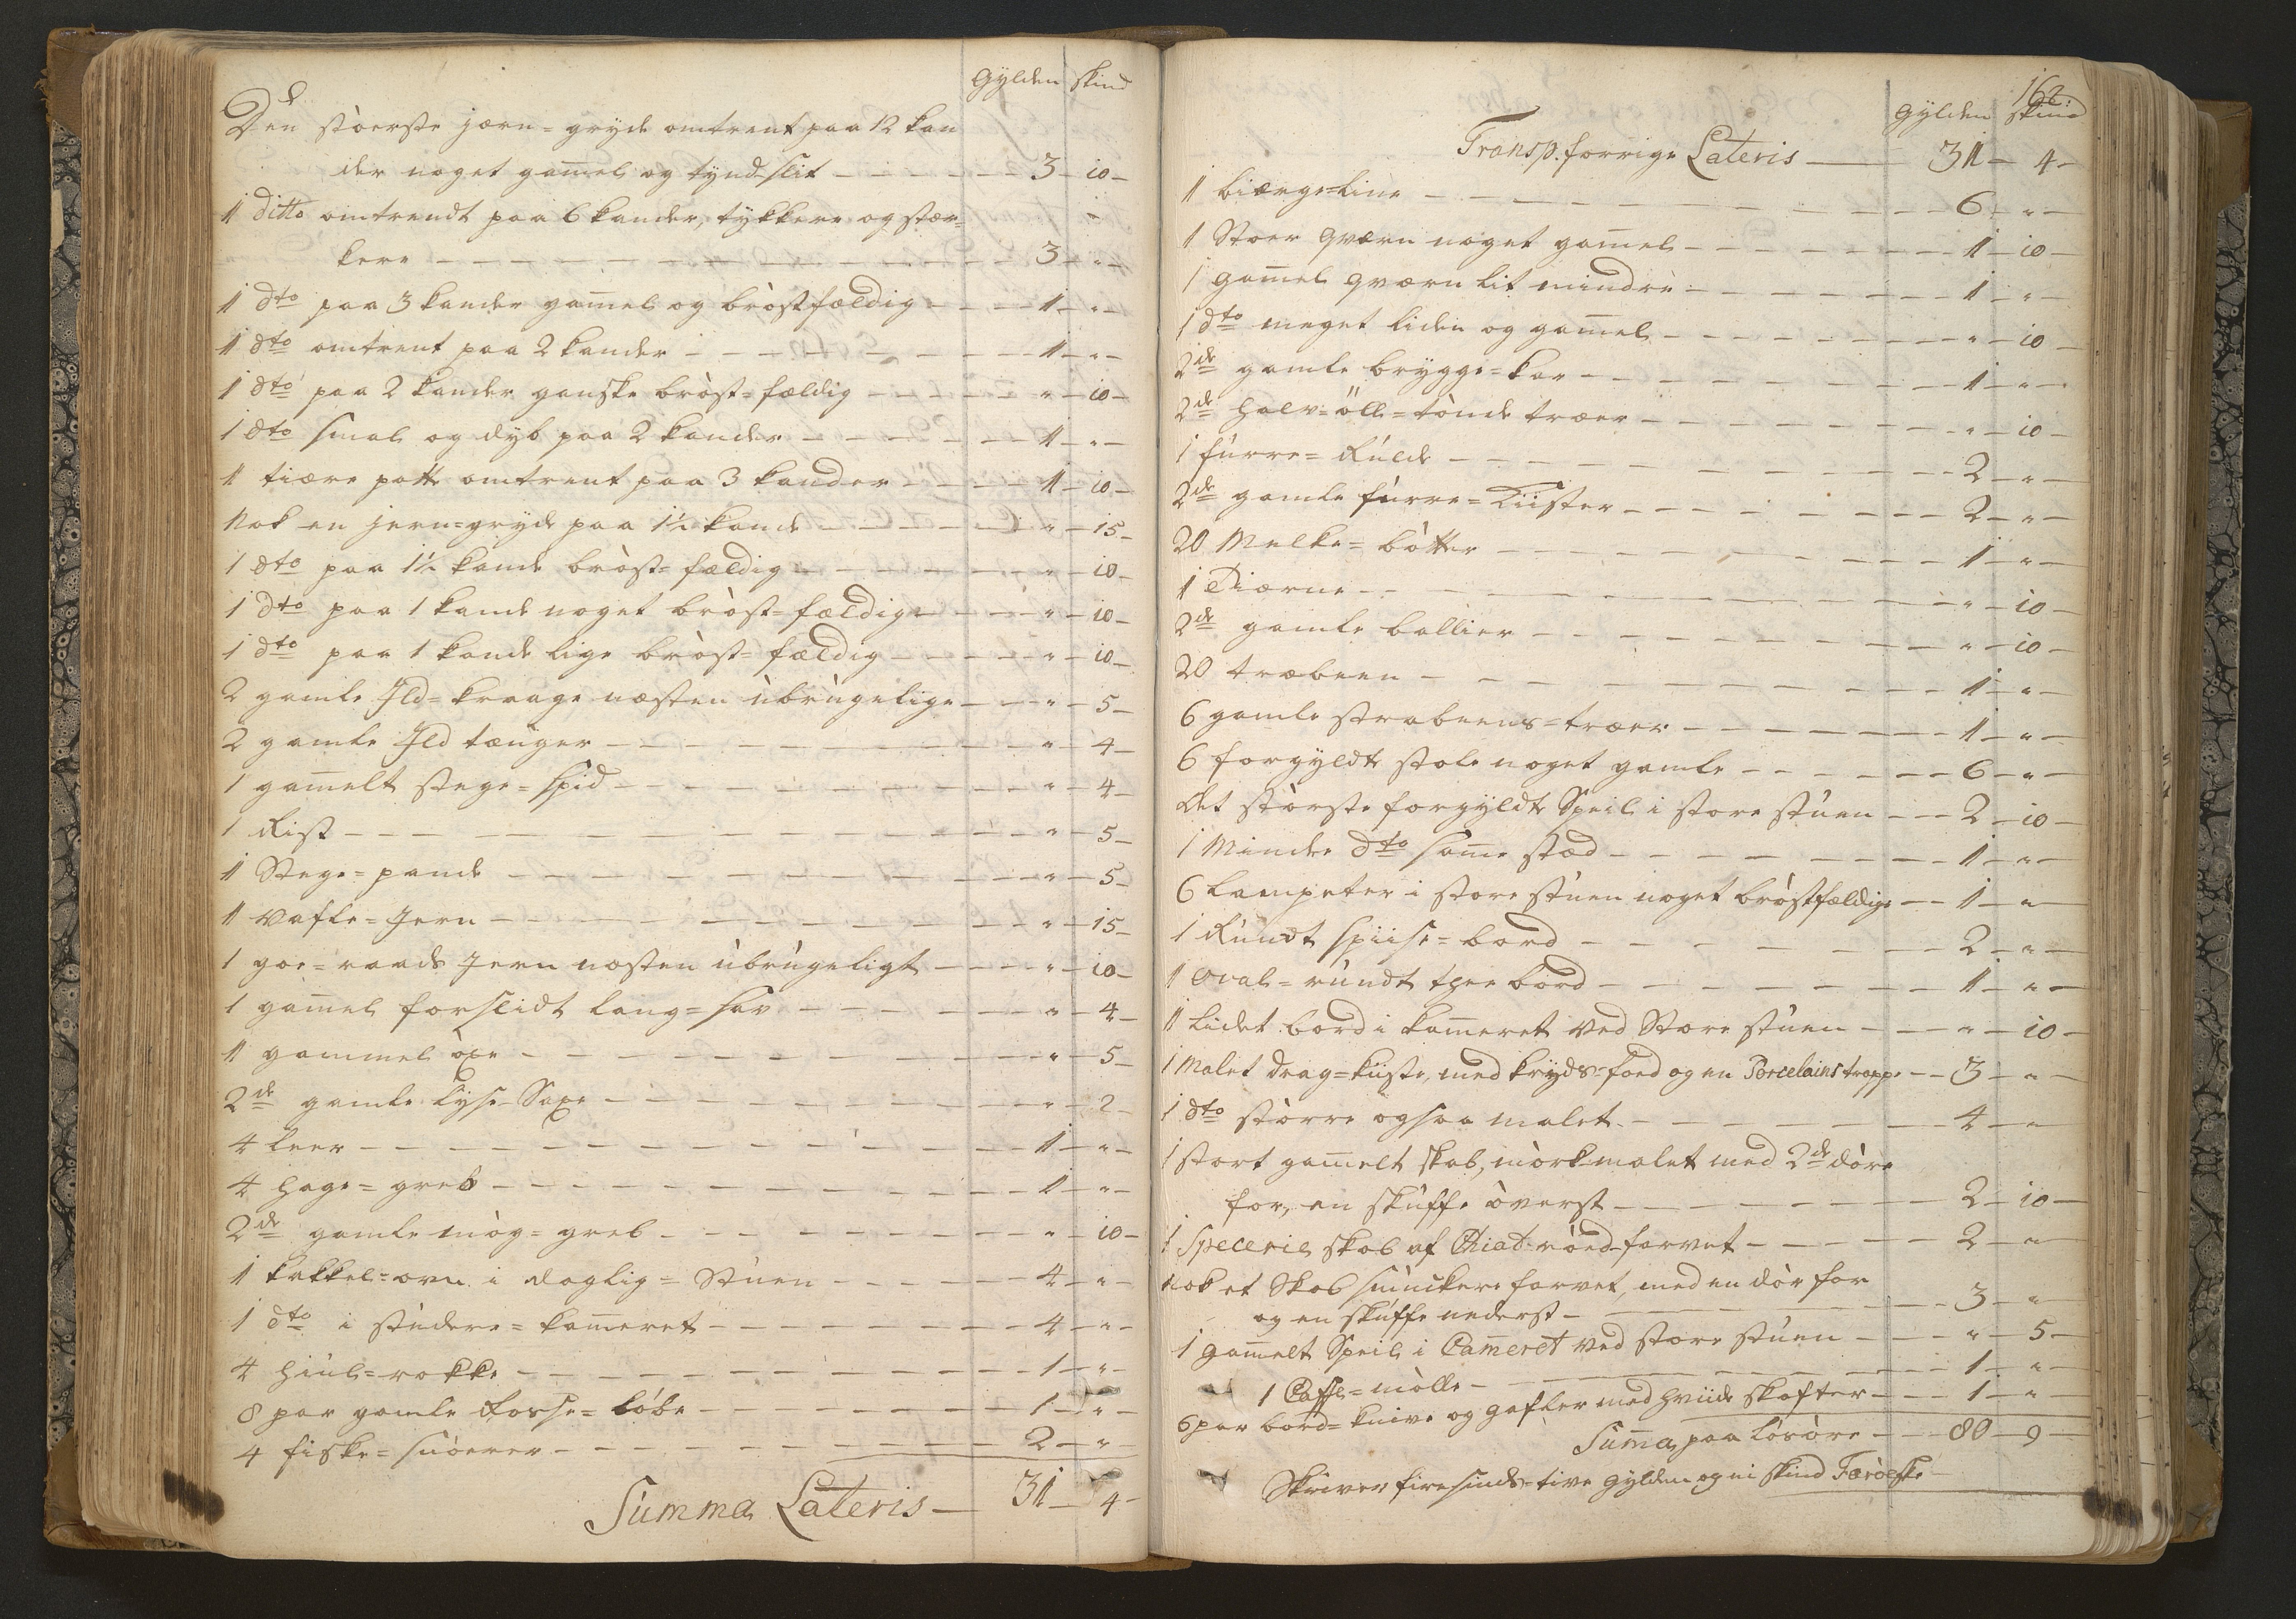 Gylden skind
Den stoerste jærn=gryde omtrent paa 12 kan
der noget gam̄el og tynd-slit — 3 — 10 —
1 ditto omtrendt paa 6 kander, tykkere og stær=
kere — 3 — " —
1 dto paa 3 kander gam̄el og bröstfældig — 1 — " —
1 dto omtrent paa 2 kander — 1 — " —
1 dto paa 2 kander ganske bröst=fældig — " — 10 —
1 dto smal og dyb paa 2 kander — 1 — " —
1 tiære potte omtrent paa 3 kander — 1 — 10 —
Nok en jern=gryde paa 1½ kande — " — 15 —
1 dto paa 1½ kande bröst=fældig — " — 10 —
1 dto paa 1 kande noget bröst=fældig — " — 10 —
1 dto paa 1 kande lige bröst=fældig — " — 10 —
2 gamle Jld=kraage næsten ubrugelige — " — 5 —
2 gamle Jld tænger — " — 4 —
1 gam̄elt stege=spid — " — 4 —
1 Rist — " — 5 —
1 Stege=pande — " — 5 —
1 Vafle=Jern — " — 15 —
1 goe=raads Jern næsten ubrugeligt — " — 10 —
1 gam̄el forslidt lang=sav — " — 4 —
1 gammel öxe — " — 5 —
2de gamle Lyse-Saxe — " — 2 —
4 leer — 1 — " —
4 hage=greb — 1 — " —
2de gamle mög=greb — " — 10 —
1 kakkel=ovn i daglig=Stuen — 4 — " —
1 dto i studere=kam̄eret — 4 — " —
4 hiul=rokke — 1 — " —
8 par gamle Rosse=löbe — 1 — " —
4 fiske=snöerer — 2 — " —
Summa Lateris — 31 — 4 —
162.
Gylden skind
Transp. forrige Lateris — 31 — 4 —
1 biærge=line — 6 — " —
1 Stoer qværn noget gam̄el — 1 — 10 —
1 gam̄el qværn lit mindre — 1 — " —
1 dto meget liden og gam̄el — " — 10 —
2de gamle brygge=kar — 1 — " —
2de halv=öll=tönde træer — " — 10 —
1 furre=Rulde — 2 — " —
2de gamle furre=Kiister — 2 — " —
20 Melke=bötter — 1 — " —
1 Kiærne — " — 10 —
2de gamle ballier — " — 10 —
20 træbeen — 1 — " —
6 gamle strabeens=træer — 1 — " —
6 forgyldte stole noget gamle — 6 — " —
Det störste forgyldte Speil i store stuen — 2 — 10 —
1 Mindre dto sam̄e stæd — 1 — " —
6 Lampeter i store stuen noget bröstfældige — 1 — " —
1 Rundt spiise=bord — 2 — " —
1 oval=rundt thee bord — 1 — " —
1 Lidet bord i kam̄eret ved Store stuen — " — 10 —
1 Malet drag=kiiste, med kryds-foed og en Porcelains trappe — 3 — " —
1 dto större ogsaa malet — 4 — "
1 stort gam̄elt skab, mörk-malet med 2de döre
for, en skuffe överst — 2 — 10 —
1 Specerie skab af Thiat-röed-farvet — 2 — "
nok et Skab smuckere farvet, med en dör for
og en skuffe nederst — 3 — "
1 gam̄elt Speil i Cam̄eret ved store stuen — " — 5 —
1 Caffe=mölle — 1 — " —
6 par bord=knive og gafler med hviide skafter — 1 — " —
Sum̄a paa Lösöre — 80 — 9 —
Skriver firesinds-tive gylden og ni skind Færöeske